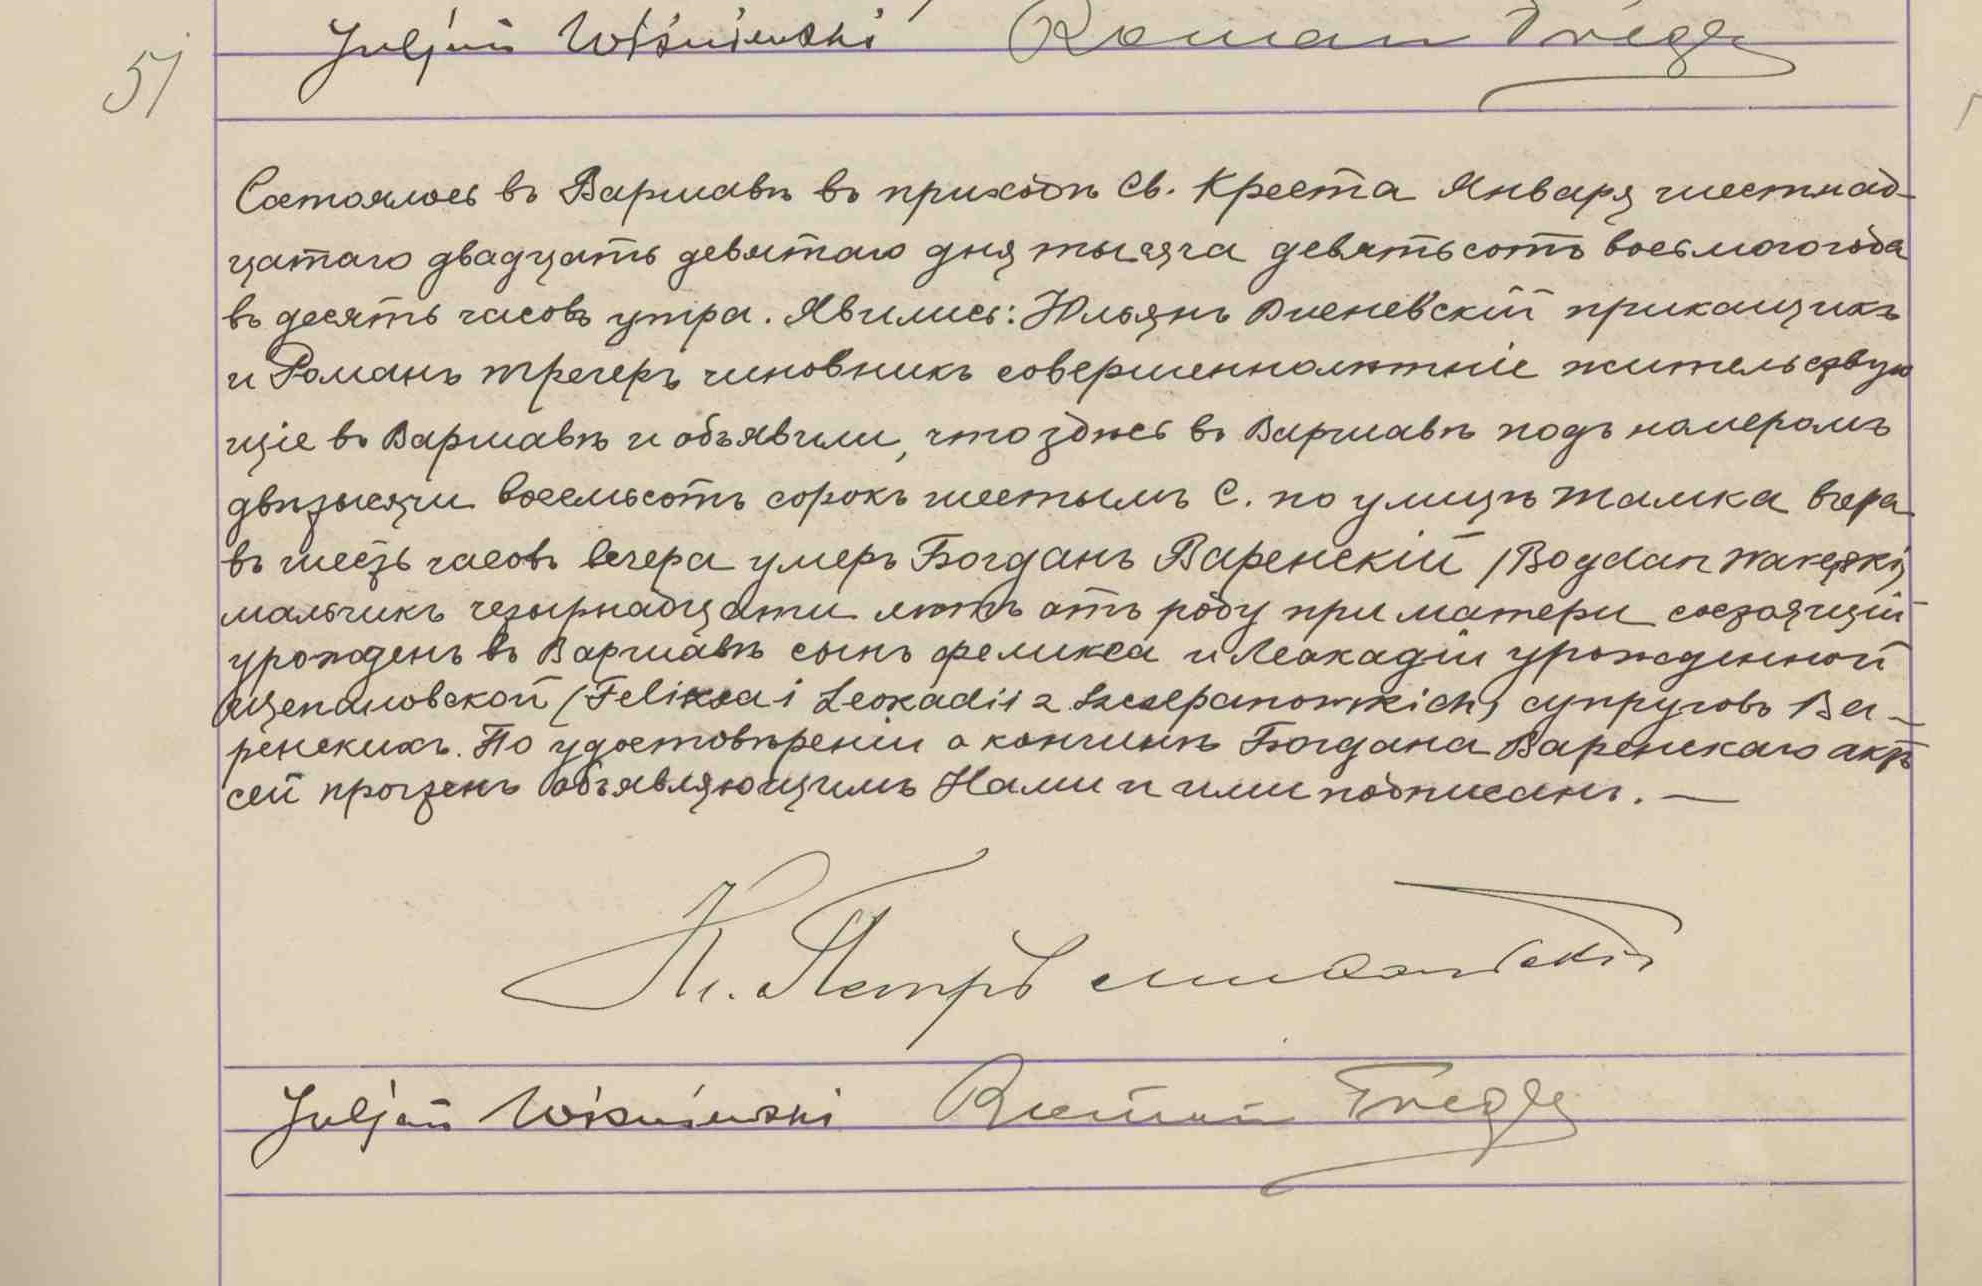 Juljan Wiśniewski Roman Treger
51
Состоялось въ Варшавѣ въ приходѣ Св. Креста Января шестнад-
цатаго двадцать девятаго дня тысяча девятьсотъ восьмого года
въ десять часовъ утра. Явились: Юльянъ Висневскій прикащикъ
и Романъ Трегеръ чиновникъ совершеннолѣтніе жительствую
щіе въ Варшавѣ и объявили, что здѣсь въ Варшавѣ подъ номеромъ
двѣтысячи восемьсотъ сорокъ шестымъ С. по улицѣ Тамка вчера
въ шесть часовъ вечера умеръ Богданъ Варенскій /Bogdan Wareński/
мальчикъ четырнадцати лѣтъ отъ роду при матери состоящій
урожденъ въ Варшавѣ сынъ Феликса и Леокадіи урожденной
Щепановской /Feliksa i Leokadii z Szczepanowskich/ супруговъ Ва-
ренскихъ. По удостовѣреніи о кончинѣ Богдана Варенскаго актъ
сей прочтенъ объявляющимъ Нами и ими подписанъ. —
Кс. Петръ
Juljan Wiśniewski Roman Treger